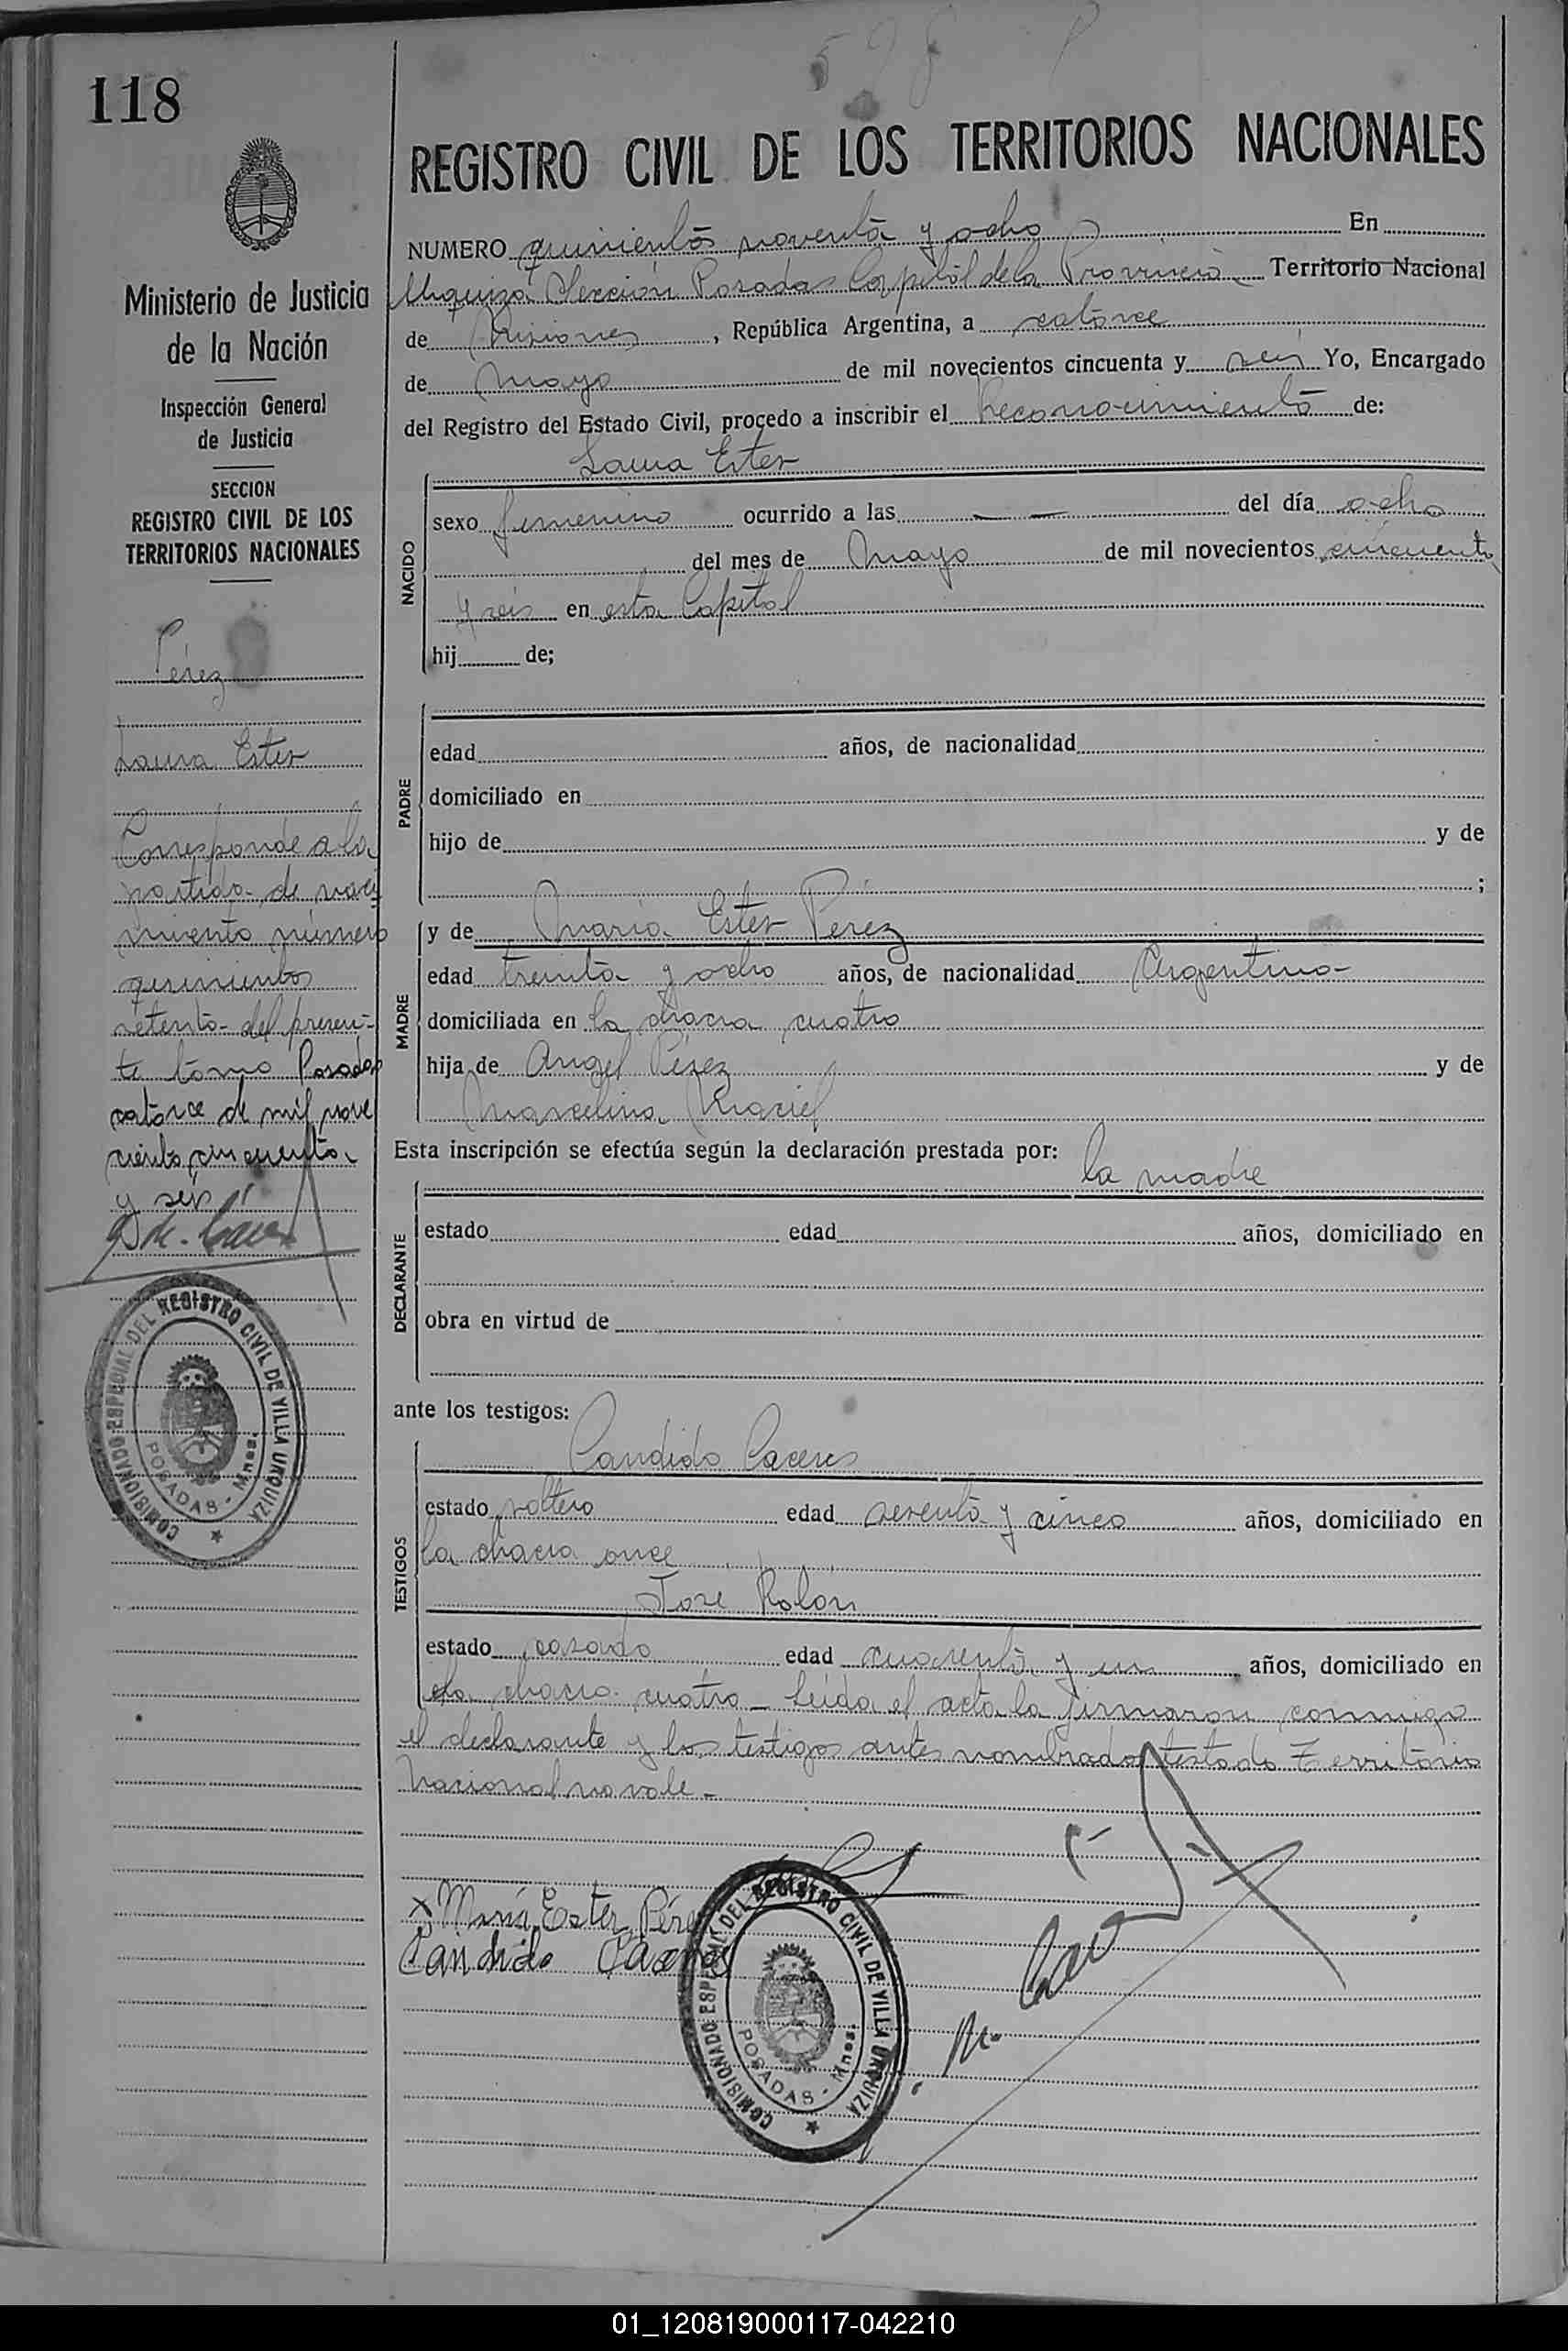 598
118
REGISTRO CIVIL DE LOS TERRITORIOS NACIONALES
Ministerio de Justicia
de la Nación
Inspección General
de Justicia
SECCION
REGISTRO CIVIL DE LOS
TERRITORIOS NACIONALES
Pérez
Laura Ester
Corresponde a la
partida de naci
miento número
quinientos
setenta del presen-
te tomo Posadas
catorce de mil nove
ciento cincuenta
y seis
COMISIONADO ESPECIAL DEL REGISTRO CIVIL DE VILLA URQUIZA
POSADAS - Mnes.
NUMERO quinientos noventa y ocho En
Urquiza Sección Posadas Capital de la Provincia Territorio Nacional
de Misiones, República Argentina, a catorce
de Mayo de mil novecientos cincuenta y seis Yo, Encargado
del Registro del Estado Civil, procedo a inscribir el Reconocimiento de:
Laura Ester
NACIDO
sexo femenino ocurrido a las — — del día ocho
del mes de Mayo de mil novecientos cincuenta
y seis en esta Capital
hij de;
PADRE
edad años, de nacionalidad
domiciliado en
hijo de y de
;
MADRE
y de Maria Ester Perez
edad treinta y ocho años, de nacionalidad Argentina
domiciliada en la chacra cuatro
hija de Angel Pérez y de
Marcelina Maciel
Esta inscripción se efectúa según la declaración prestada por: la madre
DECLARANTE
estado edad años, domiciliado en
obra en virtud de
ante los testigos:
TESTIGOS
Candido Caceres
estado soltero edad setenta y cinco años, domiciliado en
la chacra once
Jose Rolón
estado casado edad cuarenta y un años, domiciliado en
la chacra cuatro - Leida el acta la firmaron conmigo
el declarante y los testigos antes nombrados testado Territorio
Nacional no vale -
x María Ester Pére
Candido Caceres
COMISIONADO ESPECIAL DEL REGISTRO CIVIL DE VILLA URQUIZA
POSADAS - Mnes.
01_120819000117-042210